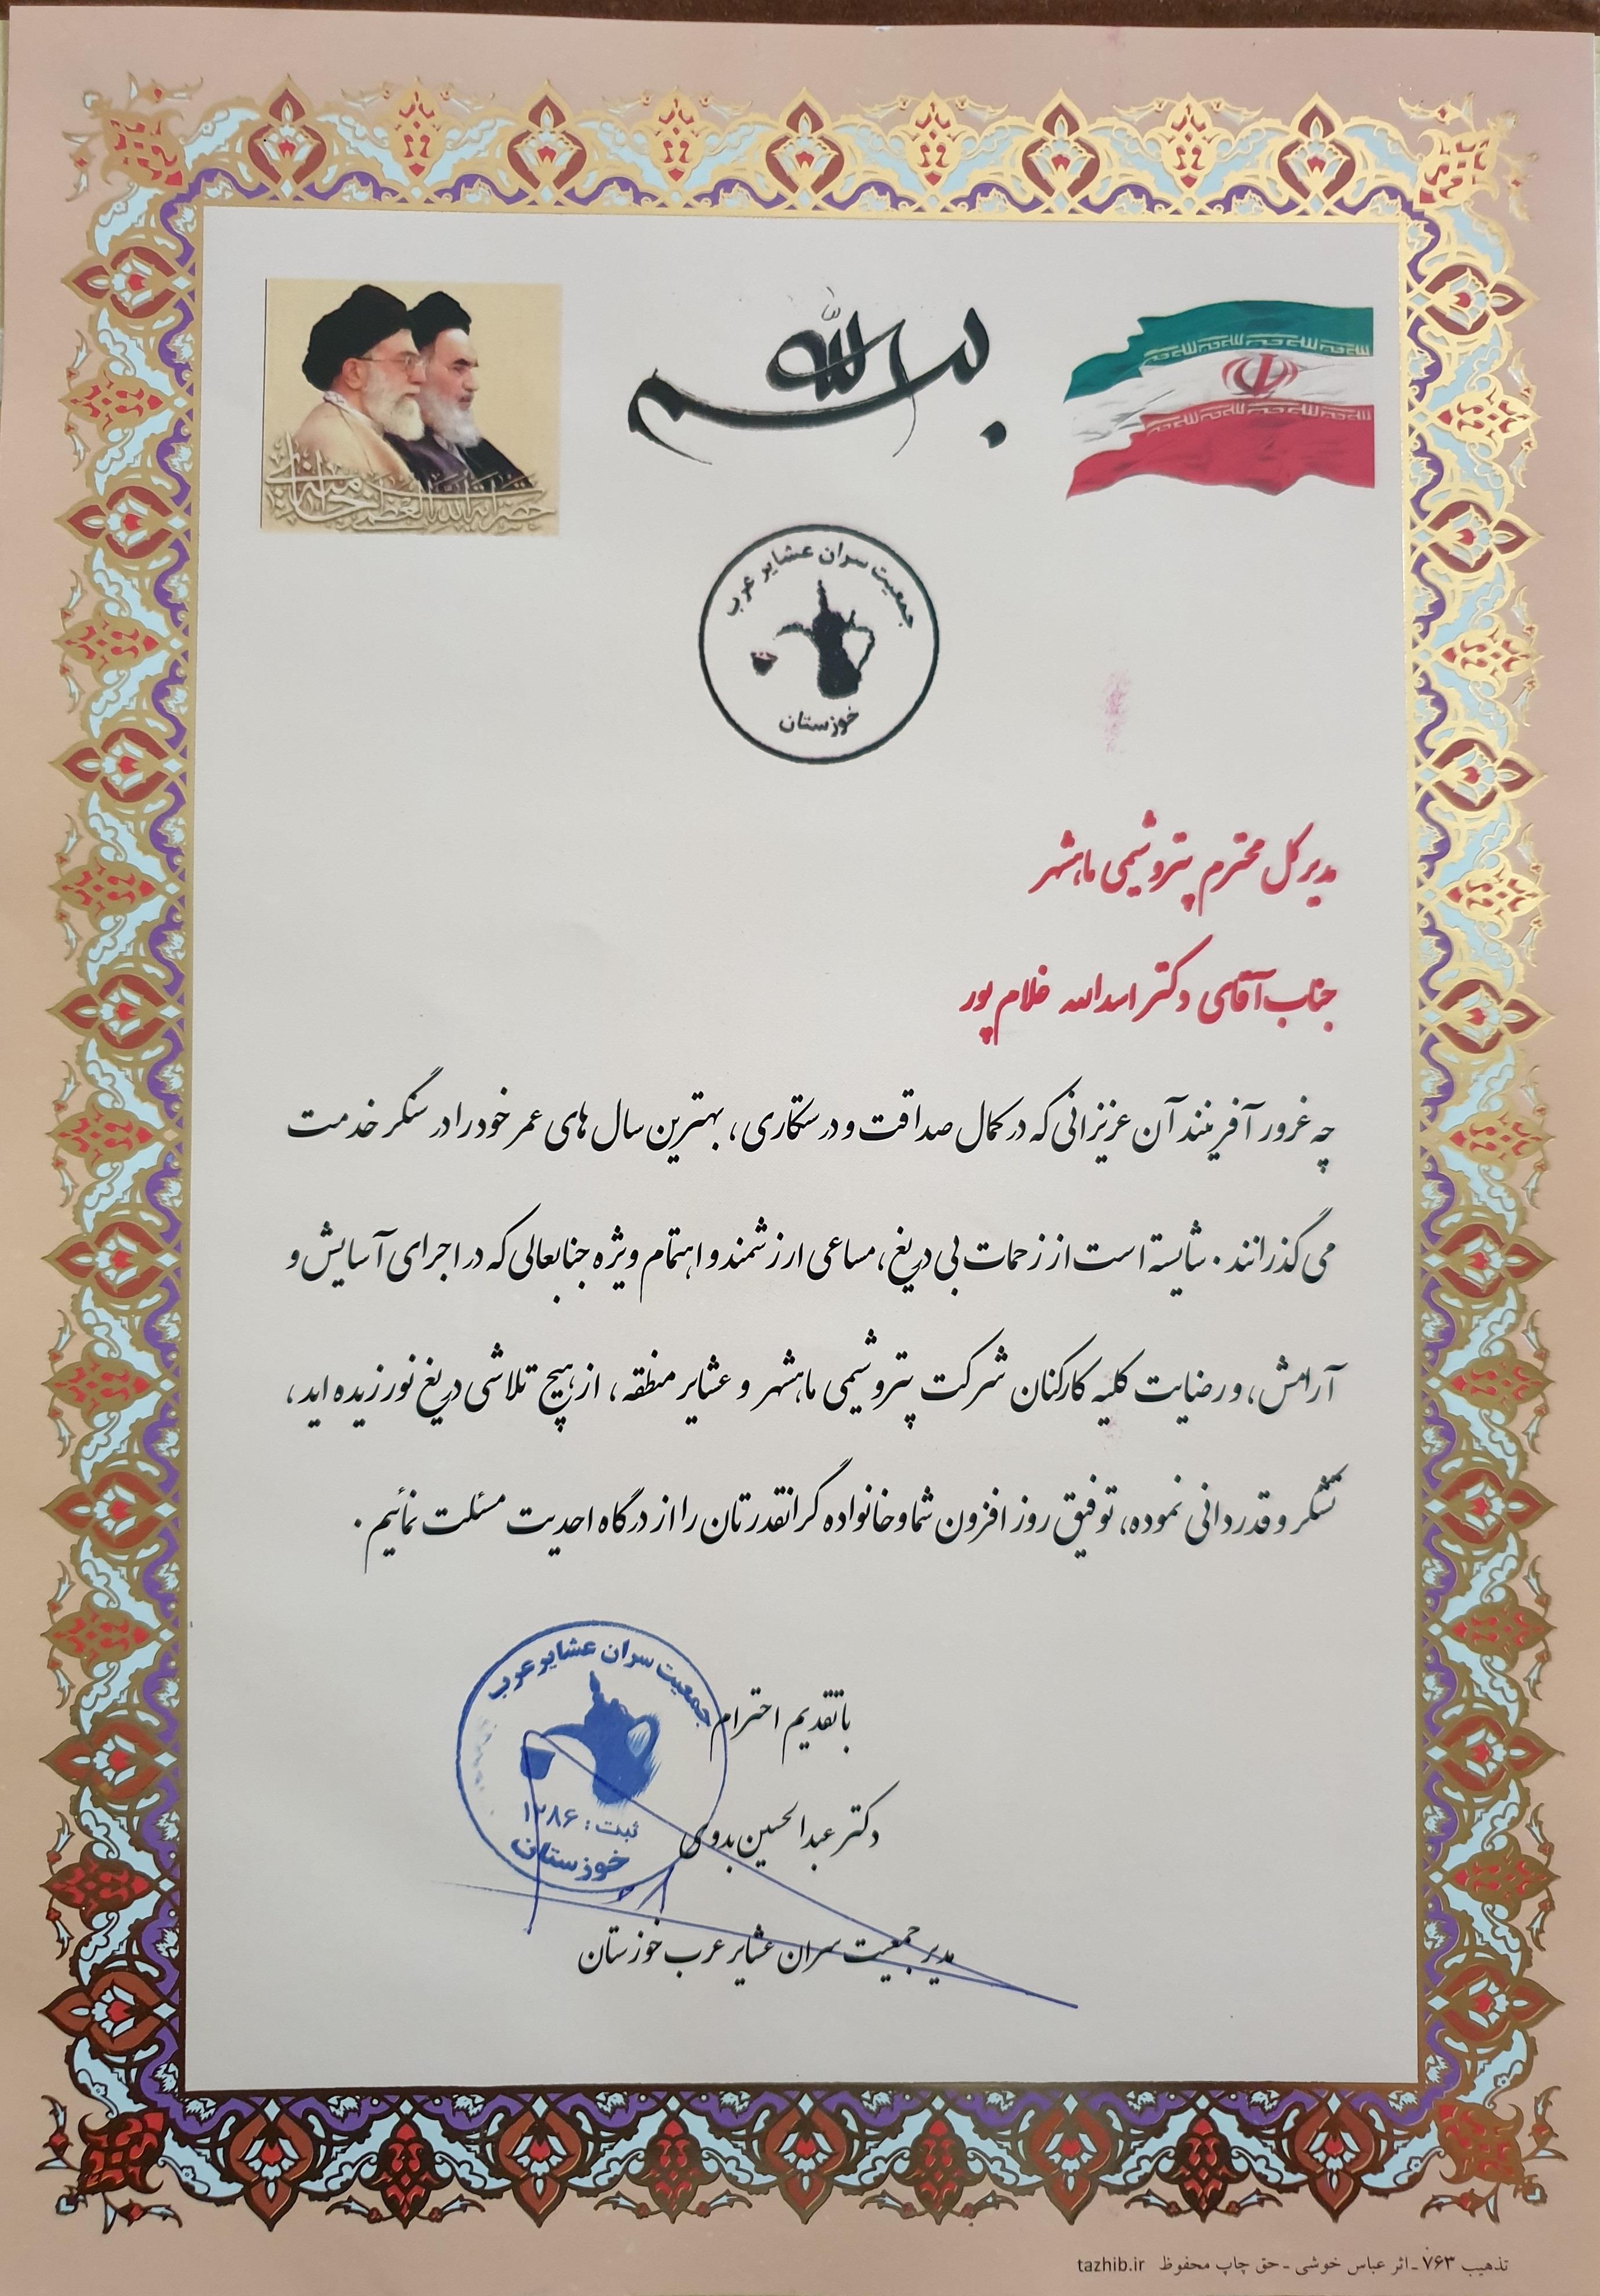 بسم الله
حضرت آیة الله العظمی خامنه‌ای
جمعیت سران عشایر عرب
خوزستان
مدیر کل محترم پتروشیمی ماهشهر
جناب آقای دکتر اسدالله غلام پور
چه غرور آفرینند آن عزیزانی که در کمال صداقت و درستکاری، بهترین سال های عمر خود را در سنگر خدمت
می گذرانند. شایسته است از زحمات بی دریغ، مساعی ارزشمند و اهتمام ویژه جنابعالی که در اجرای آسایش و
آرامش، و رضایت کلیه کارکنان شرکت پتروشیمی ماهشهر و عشایر منطقه، از هیچ تلاشی دریغ نورزیده اید،
تشکر و قدردانی نموده، توفیق روز افزون شما و خانواده گرانقدرتان را از درگاه احدیت مسئلت نمائیم.
با تقدیم احترام
دکتر عبدالحسین بدوی
مدیر جمعیت سران عشایر عرب خوزستان
جمعیت سران عشایر عرب
ثبت: ۱۲۸۶
خوزستان
تذهیب ۷۶۳ - اثر عباس خوشی - حق چاپ محفوظ tazhib.ir